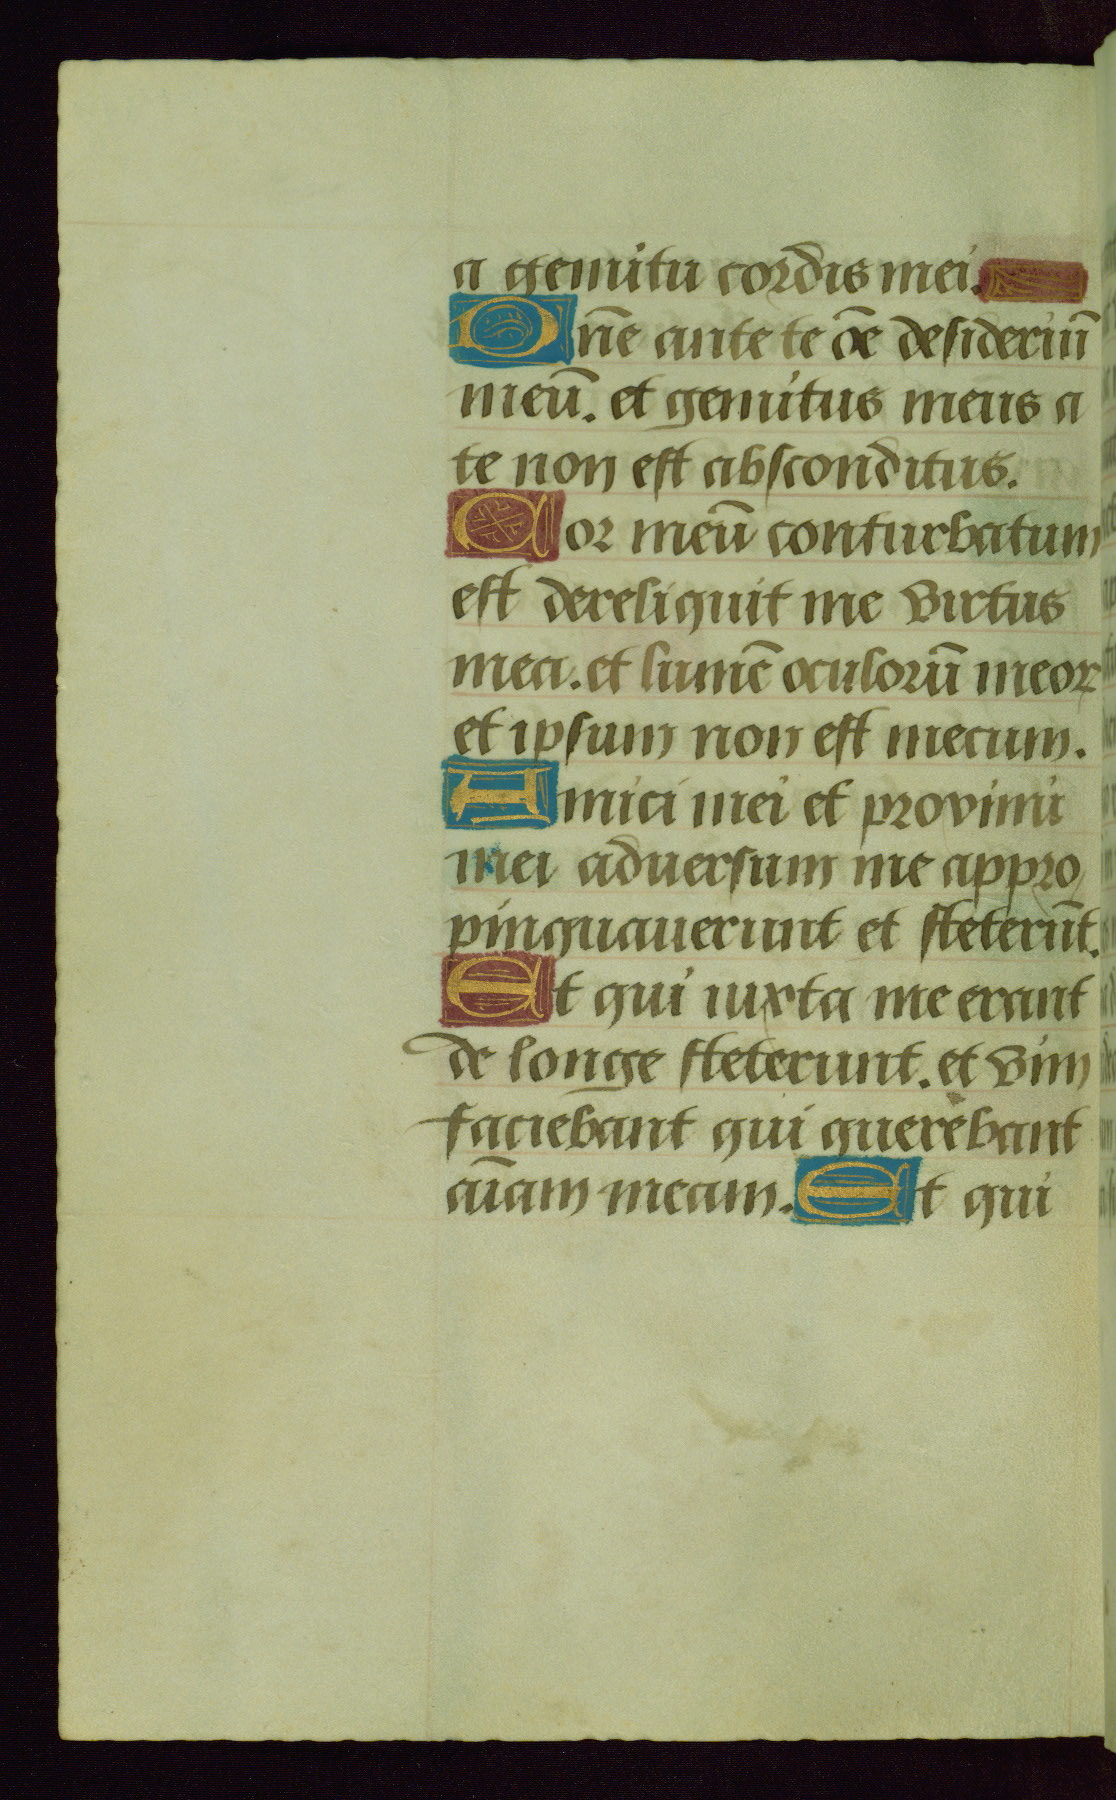 a gemitu cordis mei.
Dn̄e ante te ōe desideriū
meū. et gemitus meus a
te non est absconditus.
Cor meū conturbatum
est dereliquit me virtus
mea. et lumē oculorū meoꝝ
et ipsum non est mecum.
Amici mei et proximi
mei aduersum me appro
pinquauerunt et steterūt.
Et qui iuxta me erant
de longe steterunt. et vim
faciebant qui querebant
aīam meam. Et qui